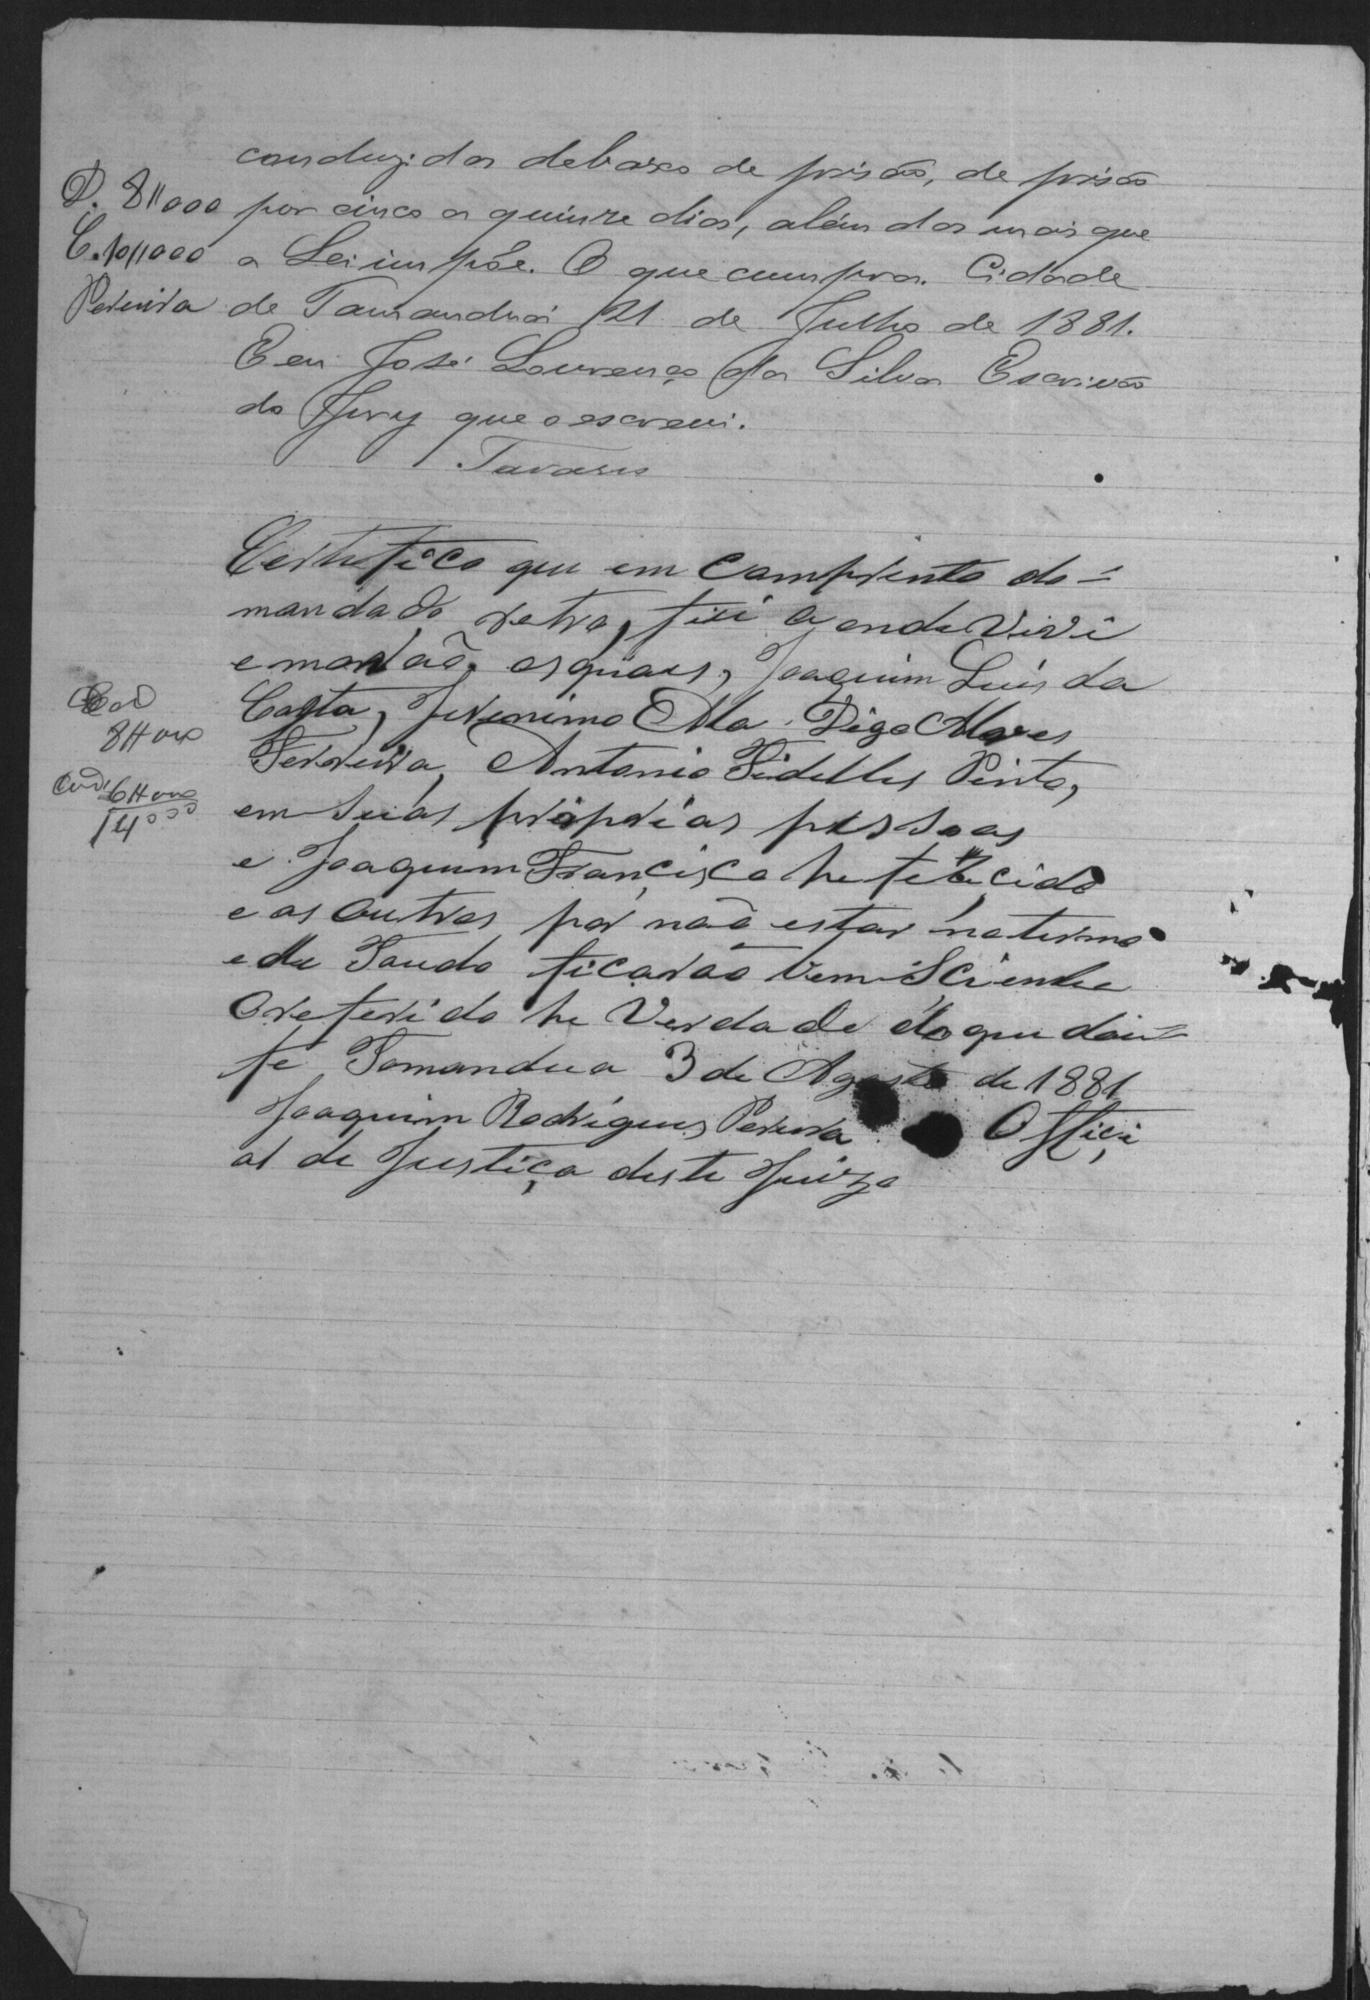 conduzidos debaixo de prisão, de prisão
D. 8||000 por cinco a quinze dias, alem do mais que
C. 10||000 a Lei impõe. O que cumpra. Cidade
Pereira de Tamanduá 21 de Julho de 1881.
E eu José Lourenço da Silva Escrivão
do Jury que o escrevi.
Tavares
Certefico que em comprinto do =
mandado retro, fui a onde vivi
e morão, os quaes, Joaquim Luis da
Costa, Jeronimo Digo Alves
8H000
Ferreira, Antonio Fidellis Pinto,
6H000
14000
em suas proprias pessoas
e Joaquim Francisco he falecido
e os outros por não estar no termo
e de Toudo ficarão bem Sciente
O referido he Verdade do que dou =
fé Tamandua 3 de Agosto de 1881
Joaquim Rodrigues Pereira Offici
al de Justiça deste Juizo